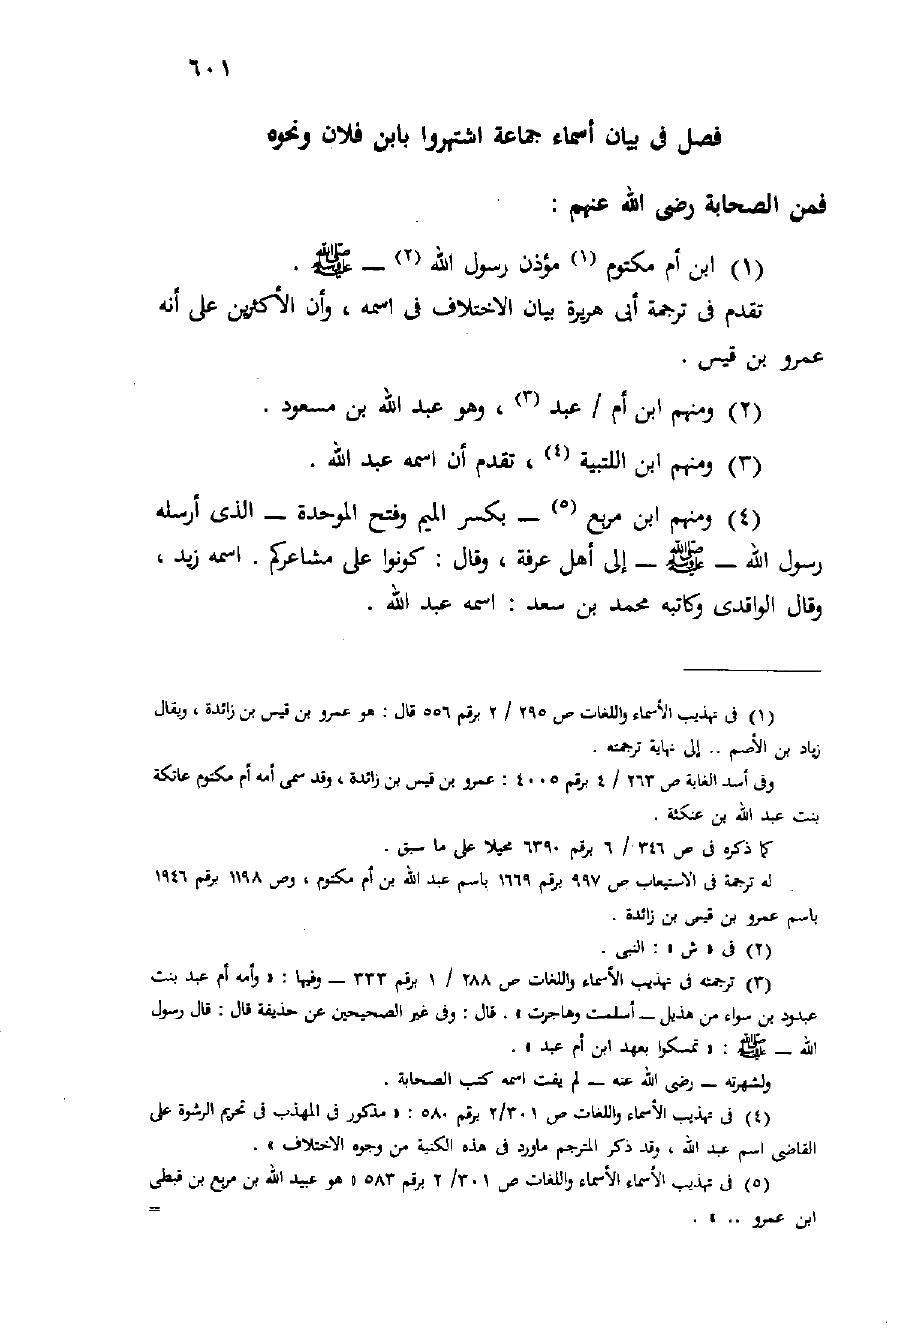 ٦٠١
فصل فى بيان أسماء جماعة اشتهروا بابن فلان ونحوه
فمن الصحابة رضى الله عنهم :
(١) ابن أم مكتوم (١) مؤذن رسول الله (٢) ــ ﷺ .
تقدم فى ترجمة أبى هريرة بيان الاختلاف فى اسمه ، وأن الأكثرين على أنه
عمرو بن قيس .
(٢) ومنهم ابن أم / عبد (٣) ، وهو عبد الله بن مسعود .
(٣) ومنهم ابن اللتبية (٤) ، تقدم أن اسمه عبد الله .
(٤) ومنهم ابن مربع (٥) ــ بكسر الميم وفتح الموحدة ــ الذى أرسله
رسول الله ــ ﷺ ــ إلى أهل عرفة ، وقال : كونوا على مشاعركم . اسمه زيد ،
وقال الواقدى وكاتبه محمد بن سعد : اسمه عبد الله .
(١) فى تهذيب الأسماء واللغات ص ٢٩٥ / ٢ برقم ٥٥٦ قال : هو عمرو بن قيس بن زائدة ، ويقال
زياد بن الأصم .. إلى نهاية ترجمته .
وفى أسد الغابة ص ٢٦٣ / ٤ برقم ٤٠٠٥ : عمرو بن قيس بن زائدة ، وقد سمى أمه أم مكتوم عاتكة
بنت عبد الله بن عنكثة .
كما ذكره فى ص ٣٤٦ / ٦ برقم ٦٣٩٠ محيلا على ما سبق .
له ترجمة فى الاستيعاب ص ٩٩٧ برقم ١٦٦٩ باسم عبد الله بن أم مكتوم ، وص ١١٩٨ برقم ١٩٤٦
باسم عمرو بن قيس بن زائدة .
(٢) فى « ش » : النبى .
(٣) ترجمته فى تهذيب الأسماء واللغات ص ٢٨٨ / ١ برقم ٣٣٣ ــ وفيها : « وأمه أم عبد بنت
عبدود بن سواء من هذيل ــ أسلمت وهاجرت » . قال : وفى غير الصحيحين عن حذيفة قال : قال رسول
الله ــ ﷺ : « تمسكوا بعهد ابن أم عبد » .
ولشهرته ــ رضى الله عنه ــ لم يفت اسمه كتب الصحابة .
(٤) فى تهذيب الأسماء واللغات ص ٢/٣٠١ برقم ٥٨٠ : « مذكور فى المهذب فى تحريم الرشوة على
القاضى اسم عبد الله ، وقد ذكر المترجم ماورد فى هذه الكنية من وجوه الاختلاف » .
(٥) فى تهذيب الأسماء الأسماء واللغات ص ٣٠١ /٢ برقم ٥٨٣ « هو عبيد الله بن مربع بن قبطى
ابن عمرو .. » .
=